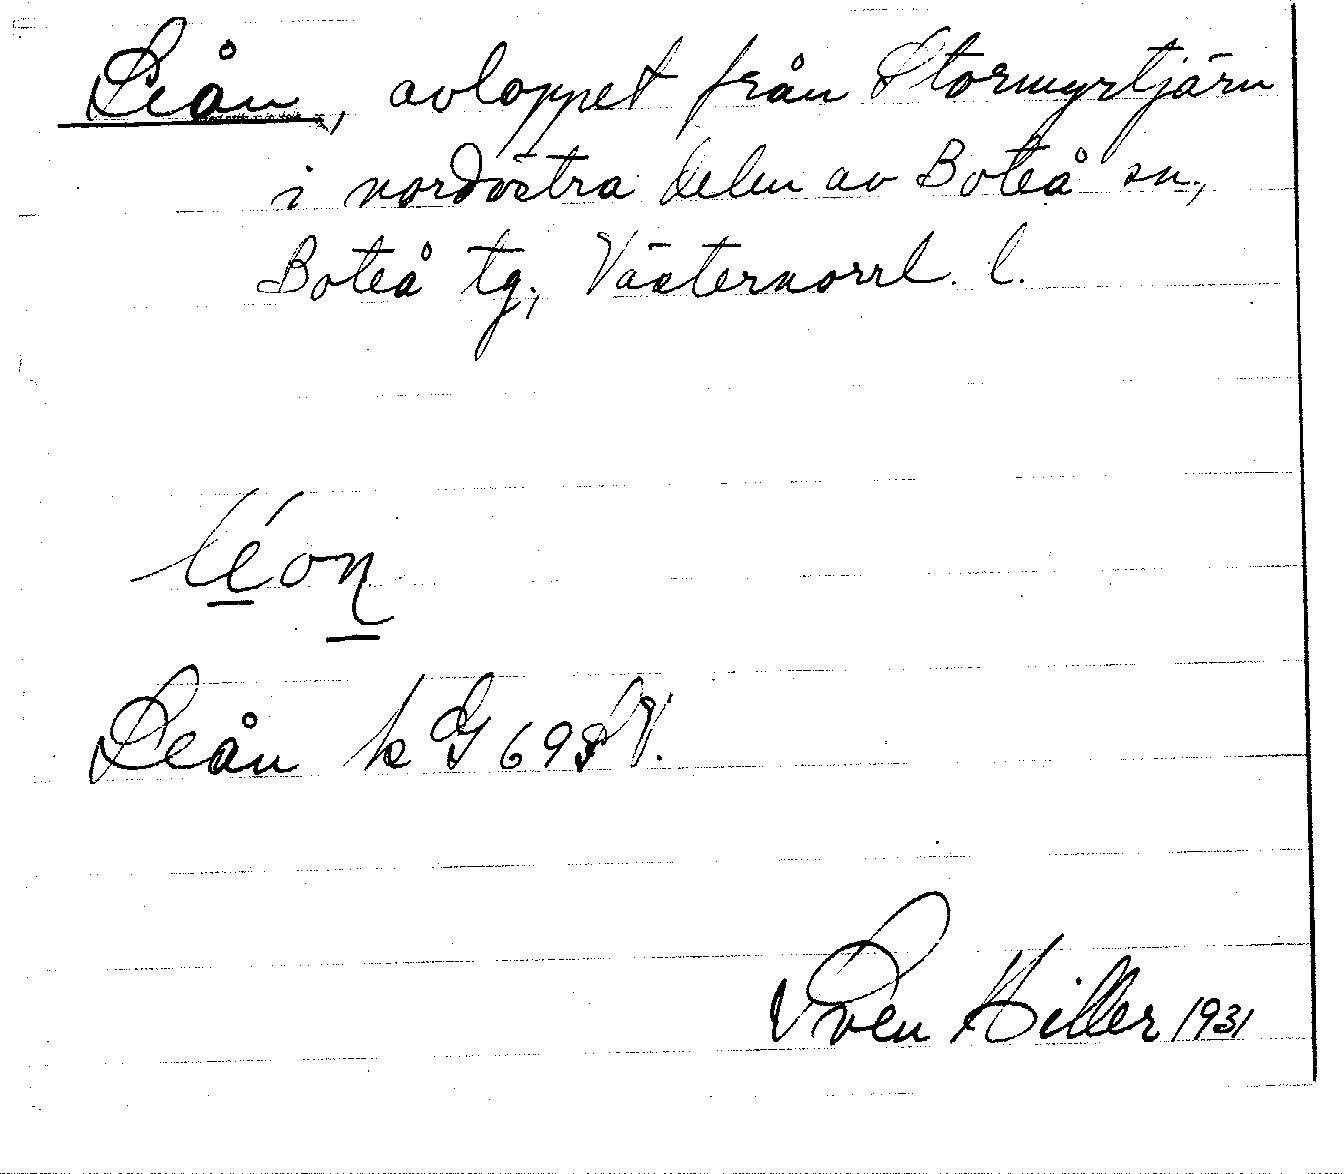 Leån, avloppet från Stormyrtjärn
i nordöstra delen av Boteå sn,
Boteå tg, Västernorrl. l.
léon
Leån k G 69 SV.
Sven Hiller 1931